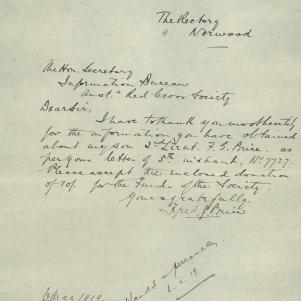 The Rectory
Norwood
The Hon. Secretary
Information Bureau
Aust. Red Cross Society
Dear Sir,
I have to thank you most heartily
for the information you have obtained
about my son 2nd Lieut. F. G. Price. as
per your letter of 5th instant, No 7727.
Please accept the enclosed donation
of 10/- for the Funds of the Society.
Yours gratefully
Fred J Price
Handed in personally
6.5.19
6 May 1919